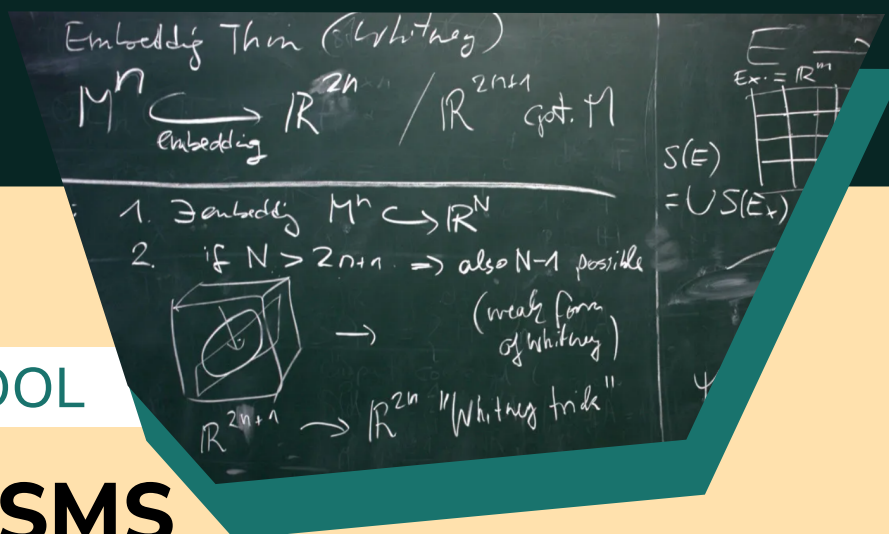 Embeddig Thm (Whitney)
Mⁿ ↪ ℝ²ⁿ / ℝ²ⁿ⁺¹ cpt. M
embedding
1. ∃ embeddig Mⁿ ↪ ℝᴺ
2. if N > 2n+1 ⇒ also N-1 possible
(weak form
of Whitney)
ℝ²ⁿ⁺¹ → ℝ²ⁿ "Whitney trick"
E
Ex. = ℝᵐ
S(E)
= ∪ S(Eₓ)
OOL
SMS